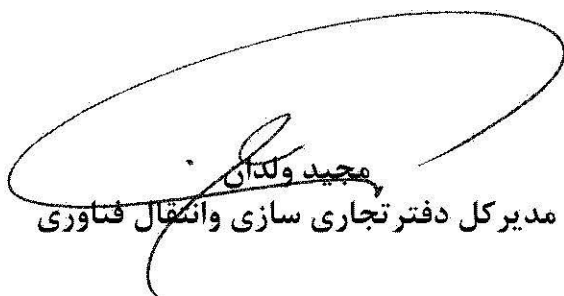 مجید ولدان
مدیرکل دفتر تجاری سازی وانتقال فناوری